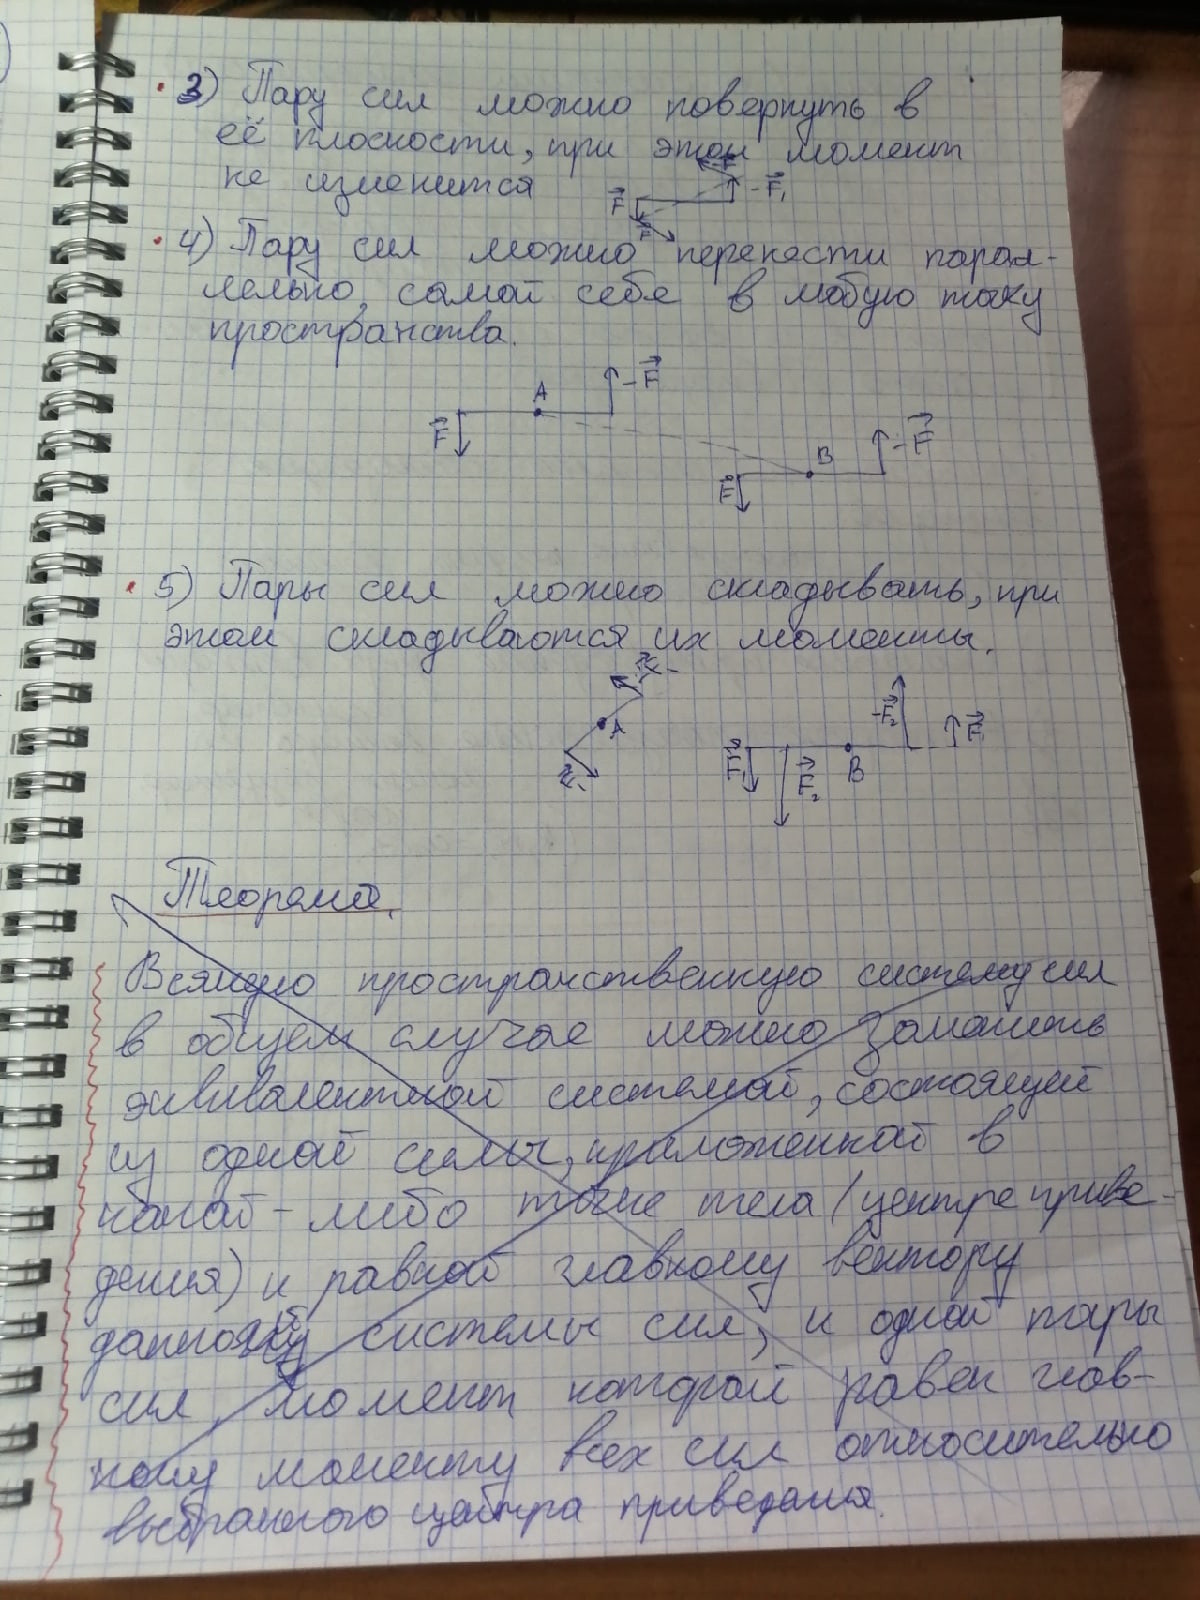 3) Пару сил можно повернуть в
её плоскости, при этом момент
не изменится
F -F₁
F
4) Пару сил можно перенести парал-
лельно, самой себе в любую точку
пространства.
A -F
F
B -F
F
5) Пары сил можно складывать, при
этом складываются их моменты.
A -F₂ F
F₁ F₂ B
Теорема.
Всякую пространственную систему сил
в общем случае можно заменить
эквивалентной системой, состоящей
из одной силы, приложенной в
какой-либо точке тела (центре приве-
дения) и равной главному вектору
данной системы сил, и одной пары
сил момент которой равен глав-
ному моменту всех сил относительно
выбранного центра приведения.